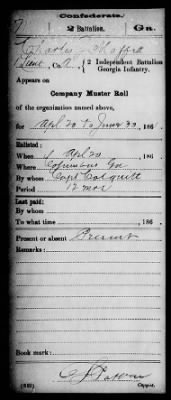 Confederate.
2 Battalion. Ga.
Charles Moffett
Lieut, Co. A, 2 Independent Battalion
Georgia Infantry.
Appears on
Company Muster Roll
of the organization named above,
for Apl 20 to June 30, 186 .
Enlisted:
When Apl 20
Where Columbus Ga
By whom Capt Colquitt
Period 12 mos
Last paid:
By whom
To what time , 186 .
Present or absent Present
Remarks:
Book mark:
(642) Copyist.